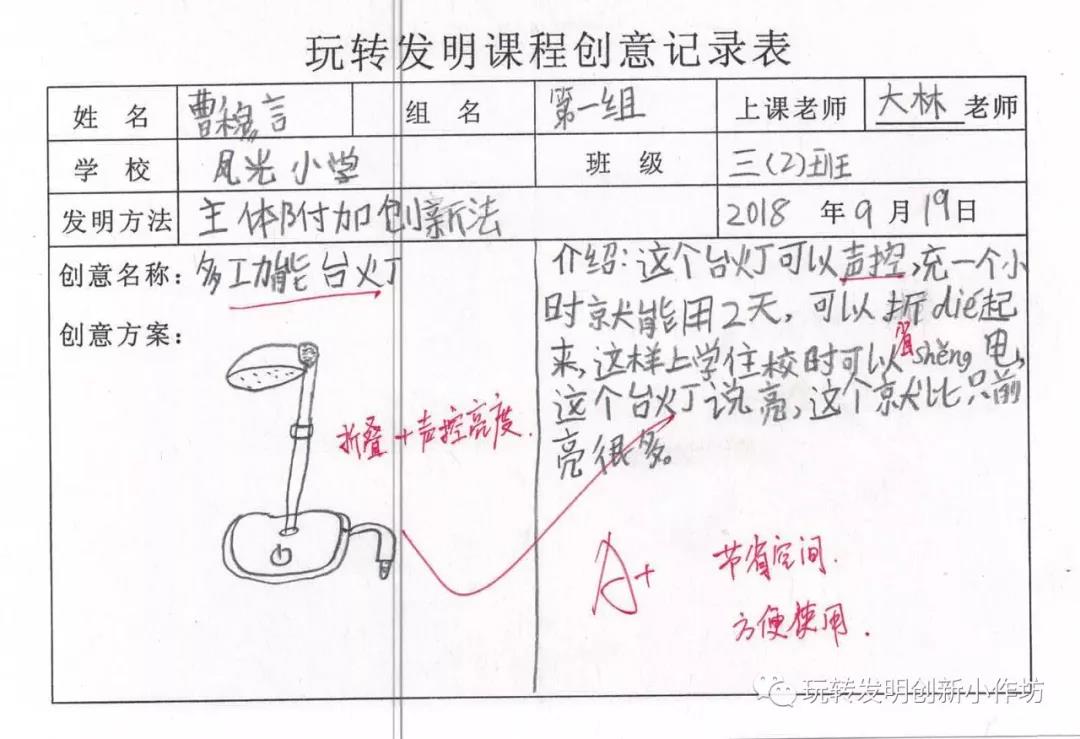 玩转发明课程创意记录表
姓 名 曹穆言 组 名 第一组 上课老师 大林 老师
学 校 凤光小学 班 级 三(2)班
发明方法 主体附加创新法 2018 年 9 月 19 日
创意名称：多功能台灯
创意方案：
折叠+声控亮度.
介绍：这个台灯可以声控，充一个小
时就能用2天，可以折dié起
来，这样上学住校时可以省shěng电，
这个台灯说亮，这个就比只前
亮很多。
A+
节省空间.
方便使用.
玩转发明创新小作坊